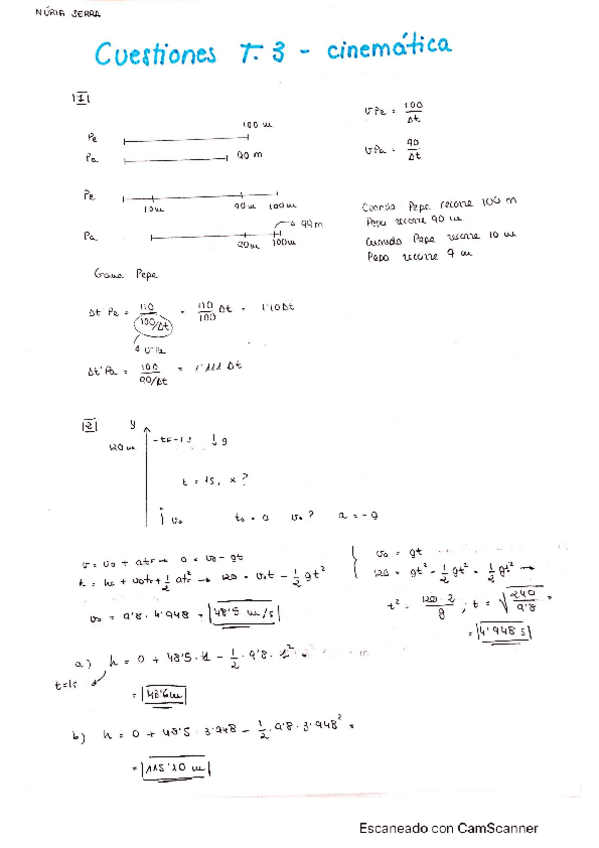 NÚRIA SERRA
Cuestiones T. 3 - cinemática
|1|
100 m
Pe
Pa 90 m
v Pe = 100/Δt
v Pa = 90/Δt
Pe
10m 90m 100m
99m
Pa
90m 100m
Cuando Pepe recorre 100 m
Papa recorre 90 m
Cuando Pepe recorre 10 m
Papa recorre 9 m
Gana Pepe
Δt Pe = 110/(100/Δt) = 110/100 Δt = 1'10Δt
v Pe
Δt Pa = 100/(90/Δt) = 1'111 Δt
|2|
y
120m
t = 1s, x?
v₀ t₀ = 0 v₀? a = -g
v = v₀ + at → 0 = v₀ - gt
120 = v₀t - 1/2 gt²
v₀ = gt
120 = gt² - 1/2 gt² = 1/2 gt² →
t² = 120·2/g ; t = √(240/9'8) =
= |4'948 s|
v₀ = 9'8 · 4'948 = |48'5 m/s|
a) h = 0 + 48'5 · 1 - 1/2 · 9'8 · 1²
t=1s
= |43'6m|
b) h = 0 + 48'5 · 3'948 - 1/2 · 9'8 · 3'948² =
= |115'10 m|
Escaneado con CamScanner